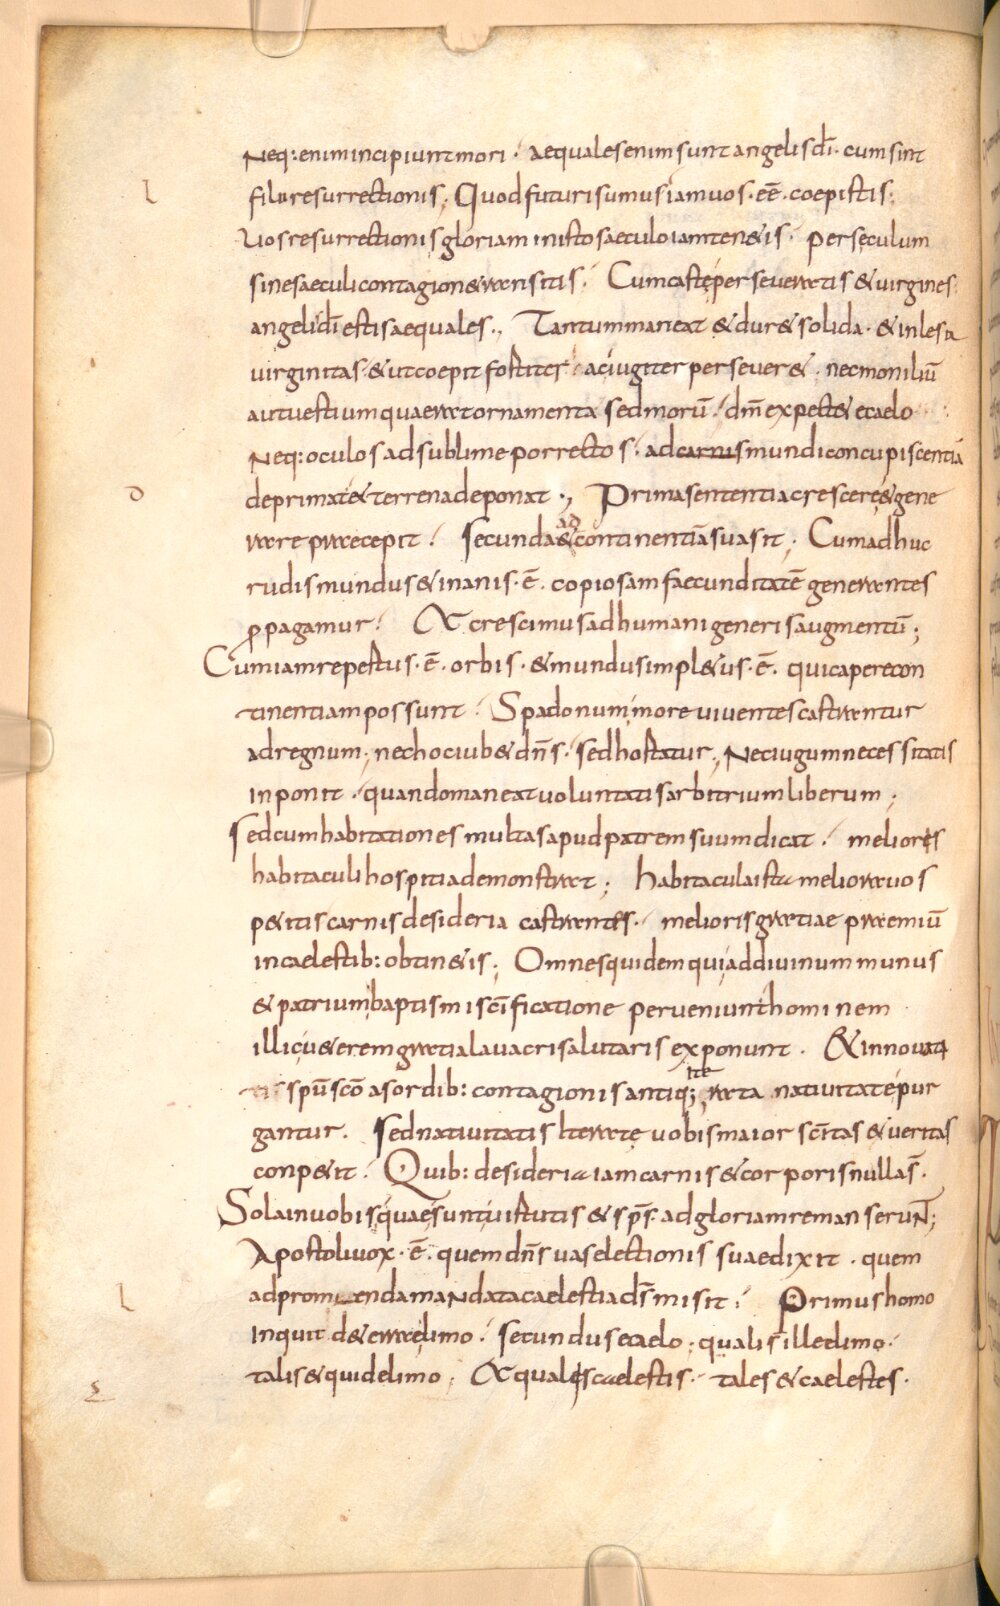 Neq: enim incipiunt mori. aequales enim sunt angelis dī. cum sint
filii resurrectionis. Quod futuri sumus iam uos. eē. coepistis.
Uos resurrectionis gloriam in isto saeculo iam ten&is. per seculum
sine saeculi contagione transitis. Cum caste perseueratis & uirgines.
angelis dī estis aequales., Tantum maneat & dur& solida. & inlesa
uirginitas & ut coepit fortiter. ac iugiter perseuer&. nec moniliū
aut uestium quaerat ornamenta sed morū. dm̄ expect& e caelo
Neq: oculos ad sublime porrectos. ad carnis mundi concupiscentiā
deprimat & terrena deponat., Prima sententia crescere & gene
rare praecepit. Secunda & ad continentiā suasit. Cum adhuc
rudis mundus & inanis. ē. copiosam faecunditatē generantes
ꝓpagamur. & crescimus ad humani generis augmentū;
Cum iam repertus. ē. orbis. & mundus impl&us. ē. qui capere con
tinentiam possunt. Spadonum more uiuentes castrentur
ad regnum. nec hoc iub& dn̄s. sed hortatur. Nec iugum necessitatis
inponit. quando maneat uoluntatis arbitrium liberum;
Sed cum habitationes multas apud patrem suum dicat. melioris
habitaculi hospitia demonstrat; habitacula ista meliora uos
p&itis carnis desideria castrantes. melioris gratiae praemiū
in caelestib: obtin&is; Omnes quidem qui ad diuinum munus
& patrium baptismi sc̄ificatione perueniunt hominem
illic u&erem gratia lauacri salutaris exponunt. & innouati
spū sc̄o a sordib: contagionis antiq; iterata natiuitate pur
gantur. Sed natiuitatis iterate uobis maior sc̄itas & ueritas
conp&it. Quib: desideria iam carnis & corporis nulla s̄.
Sola in uobis quae sunt uirtutis & sp̄s. ad gloriam remanserunt;
Apostoli uox. ē. quem dn̄s uas electionis suae dixit. quem
ad promenda mandata caelestia ds̄ misit. Primus homo
inquit de terrae limo. secundus e caelo. qualis ille e limo.
talis & qui de limo. & qualis caelestis. tales & caelestes.